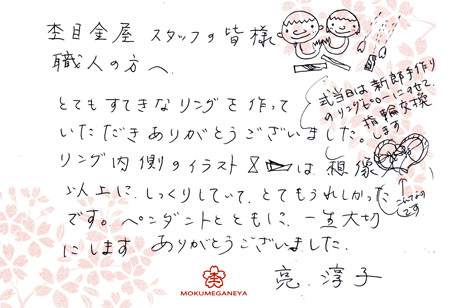 杢目金屋 スタッフの皆様
職人の方へ
とてもすてきなリングを作って
いただきありがとうございました。
リング内側のイラスト は 想像
以上に、しっくりしていて、とてもうれしかった
です。ペンダントとともに、一生大切
にします ありがとうございました。
亮 淳子
式当日は新郎手作り
のリングピローにのせて、
指輪交換
します
こんなかんじ
です
MOKUMEGANEYA